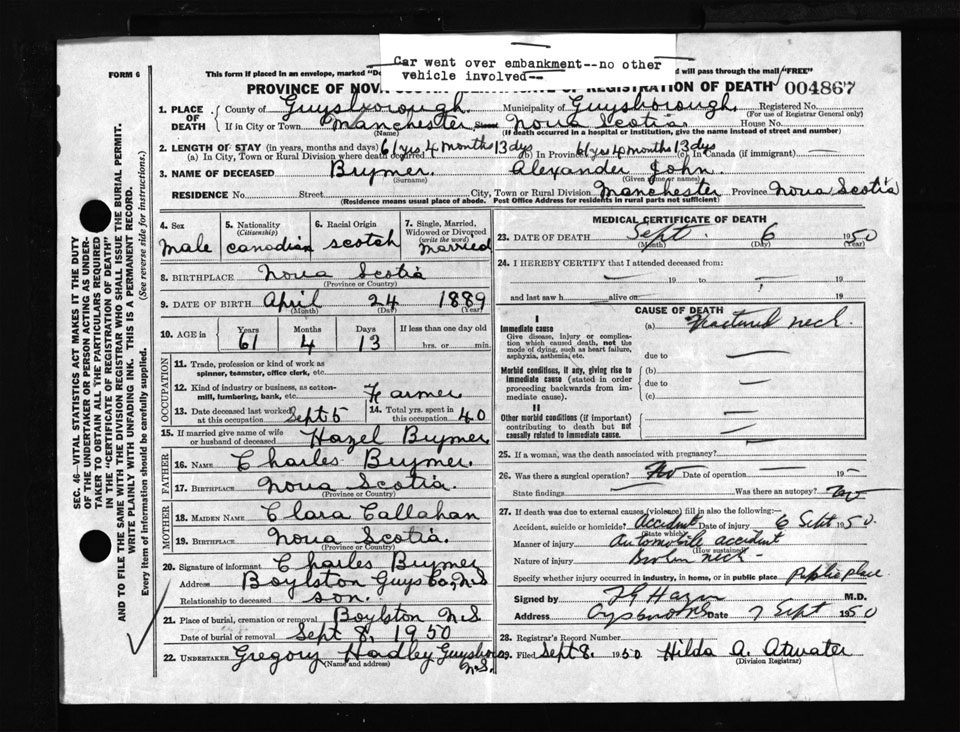 Car went over embankment--no other
vehicle involved--
FORM 6
This form if placed in an envelope, marked "De will pass through the mail "FREE"
PROVINCE OF NOVA REGISTRATION OF DEATH 004867
1. PLACE OF DEATH County of Guysborough. Municipality of Guysborough. Registered No.
(For use of Registrar General only)
If in City or Town Manchester Street Nova Scotia House No.
(Name) (If death occurred in a hospital or institution, give the name instead of street and number)
2. LENGTH OF STAY (in years, months and days) 61 yrs 4 months 13 dys 61 yrs 4 months 13 dys
(a) In City, Town or Rural Division where death occurred (b) In Province (c) In Canada (if immigrant)
3. NAME OF DECEASED Brymer. Alexander John.
(Surname) (Given name or names)
RESIDENCE No. Street City, Town or Rural Division Manchester Province Nova Scotia
(Residence means usual place of abode. Post Office Address for residents in rural parts not sufficient)
SEC. 46—VITAL STATISTICS ACT MAKES IT THE DUTY
OF THE UNDERTAKER OR PERSON ACTING AS UNDER-
TAKER TO OBTAIN ALL THE PARTICULARS REQUIRED
IN THE "CERTIFICATE OF REGISTRATION OF DEATH"
AND TO FILE THE SAME WITH THE DIVISION REGISTRAR WHO SHALL ISSUE THE BURIAL PERMIT.
WRITE PLAINLY WITH UNFADING INK. THIS IS A PERMANENT RECORD.
Every item of information should be carefully supplied. (See reverse side for instructions.)
4. Sex 5. Nationality (Citizenship) 6. Racial Origin 7. Single, Married, Widowed or Divorced (write the word)
male canadian scotch married
8. BIRTHPLACE Nova Scotia
(Province or Country)
9. DATE OF BIRTH April 24 1889
(Month) (Day) (Year)
10. AGE in Years Months Days If less than one day old
61 4 13 hrs. or min.
OCCUPATION
11. Trade, profession or kind of work as
spinner, teamster, office clerk, etc.
12. Kind of industry or business, as cotton-
mill, lumbering, bank, etc. Farmer
13. Date deceased last worked at this occupation Sept 5 14. Total yrs. spent in this occupation 40
15. If married give name of wife or husband of deceased Hazel Brymer
FATHER
16. NAME Charles Brymer.
17. BIRTHPLACE Nova Scotia.
(Province or Country)
MOTHER
18. MAIDEN NAME Clara Callahan
19. BIRTHPLACE Nova Scotia
(Province or Country)
20. Signature of informant Charles Brymer
Address Boylston Guys Co, N.S
Relationship to deceased son.
21. Place of burial, cremation or removal Boylston N.S
Date of burial or removal Sept 8, 1950
22. UNDERTAKER Gregory Hadley Guysboro N.S.
(Name and address)
MEDICAL CERTIFICATE OF DEATH
23. DATE OF DEATH Sept. 6 1950
(Month) (Day) (Year)
24. I HEREBY CERTIFY that I attended deceased from:
19 to 19
and last saw h alive on 19
CAUSE OF DEATH
I
Immediate cause (a) Fractured neck.
Give disease, injury or complica-
tion which caused death, not the
mode of dying, such as heart failure,
asphyxia, asthenia, etc. due to
Morbid conditions, if any, giving rise to
immediate cause (stated in order
proceeding backwards from im-
mediate cause). (b)
due to
(c)
II
Other morbid conditions (if important)
contributing to death but not
causally related to immediate cause.
25. If a woman, was the death associated with pregnancy?
26. Was there a surgical operation? No Date of operation 19
State findings Was there an autopsy? No
27. If death was due to external causes (violence) fill in also the following:—
Accident, suicide or homicide? Accident Date of injury 6 Sept 1950.
(State which)
Manner of injury Automobile accident
(How sustained)
Nature of injury Broken neck
Specify whether injury occurred in industry, in home, or in public place Public place
Signed by M.D.
Address Date 7 Sept 1950
28. Registrar's Record Number
29. Filed Sept 8. 1950 Hilda A. Atwater
(Division Registrar)